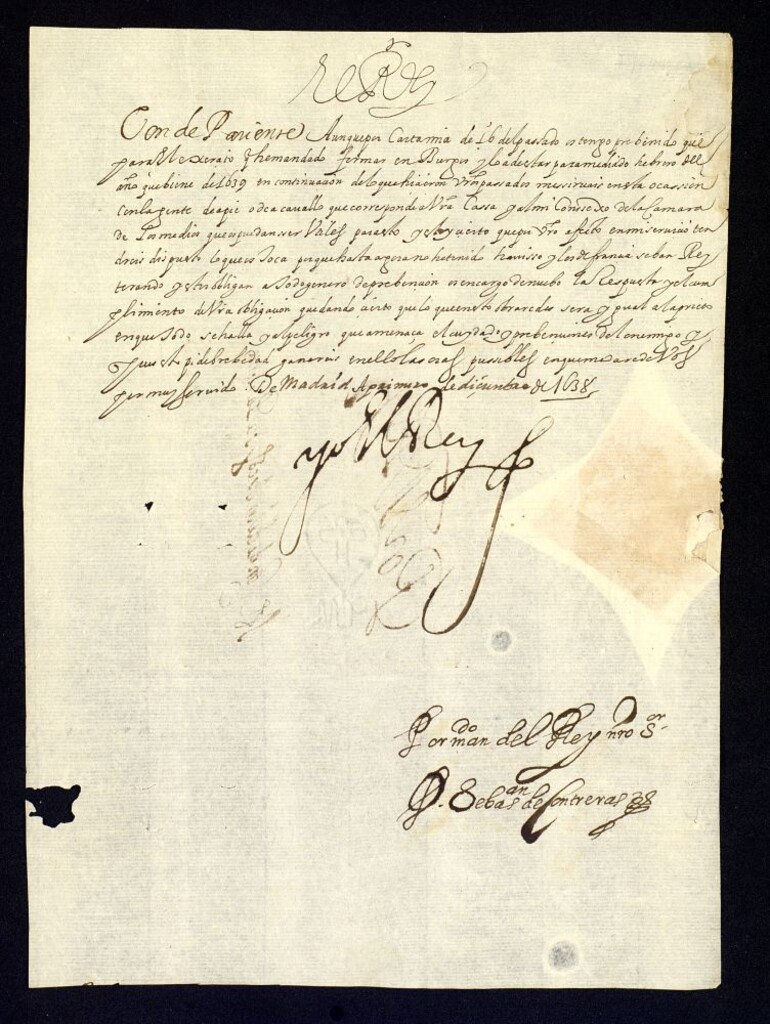 El Rey
Conde Pariente Aunque por Carta mia de 16 del pasado os tengo prebenido que
para el exercito q he mandado formar en Burgos y ha de estar para mediado hebrero del
año que biene de 1639 en continuacion de lo que hicieron vros pasados me sirvais en esta ocassion
con la gente de a pie o de a cavallo que corresponde a Vra Casa y al mi Conssexo de la Camara
de los medios que os puedan ser Vales para esto y estoy cierto que por vro afecto en mi servicio ten
dreis dispuesto lo que os toca porque hasta agora no he tenido havisso y los de francia se ban Rey
terando y estos obligan a todo genero de prebencion os encargo de nuebo la Respuesta y el cum
plimiento de Vra obligacion quedando cierto que lo que en esto obraredes sera ygual al aprieto
en que todo se halla y al peligro que amenaça el cuydado y prebenciones del enemigo y
pues esto pide brebedad ganareis en ello las oras possibles en que me dare de Vos
por muy servido De Madrid a primero de diciembre de 1638
yo el Rey
Por mando del Rey nro Sor
D. Sebasan de Contreras